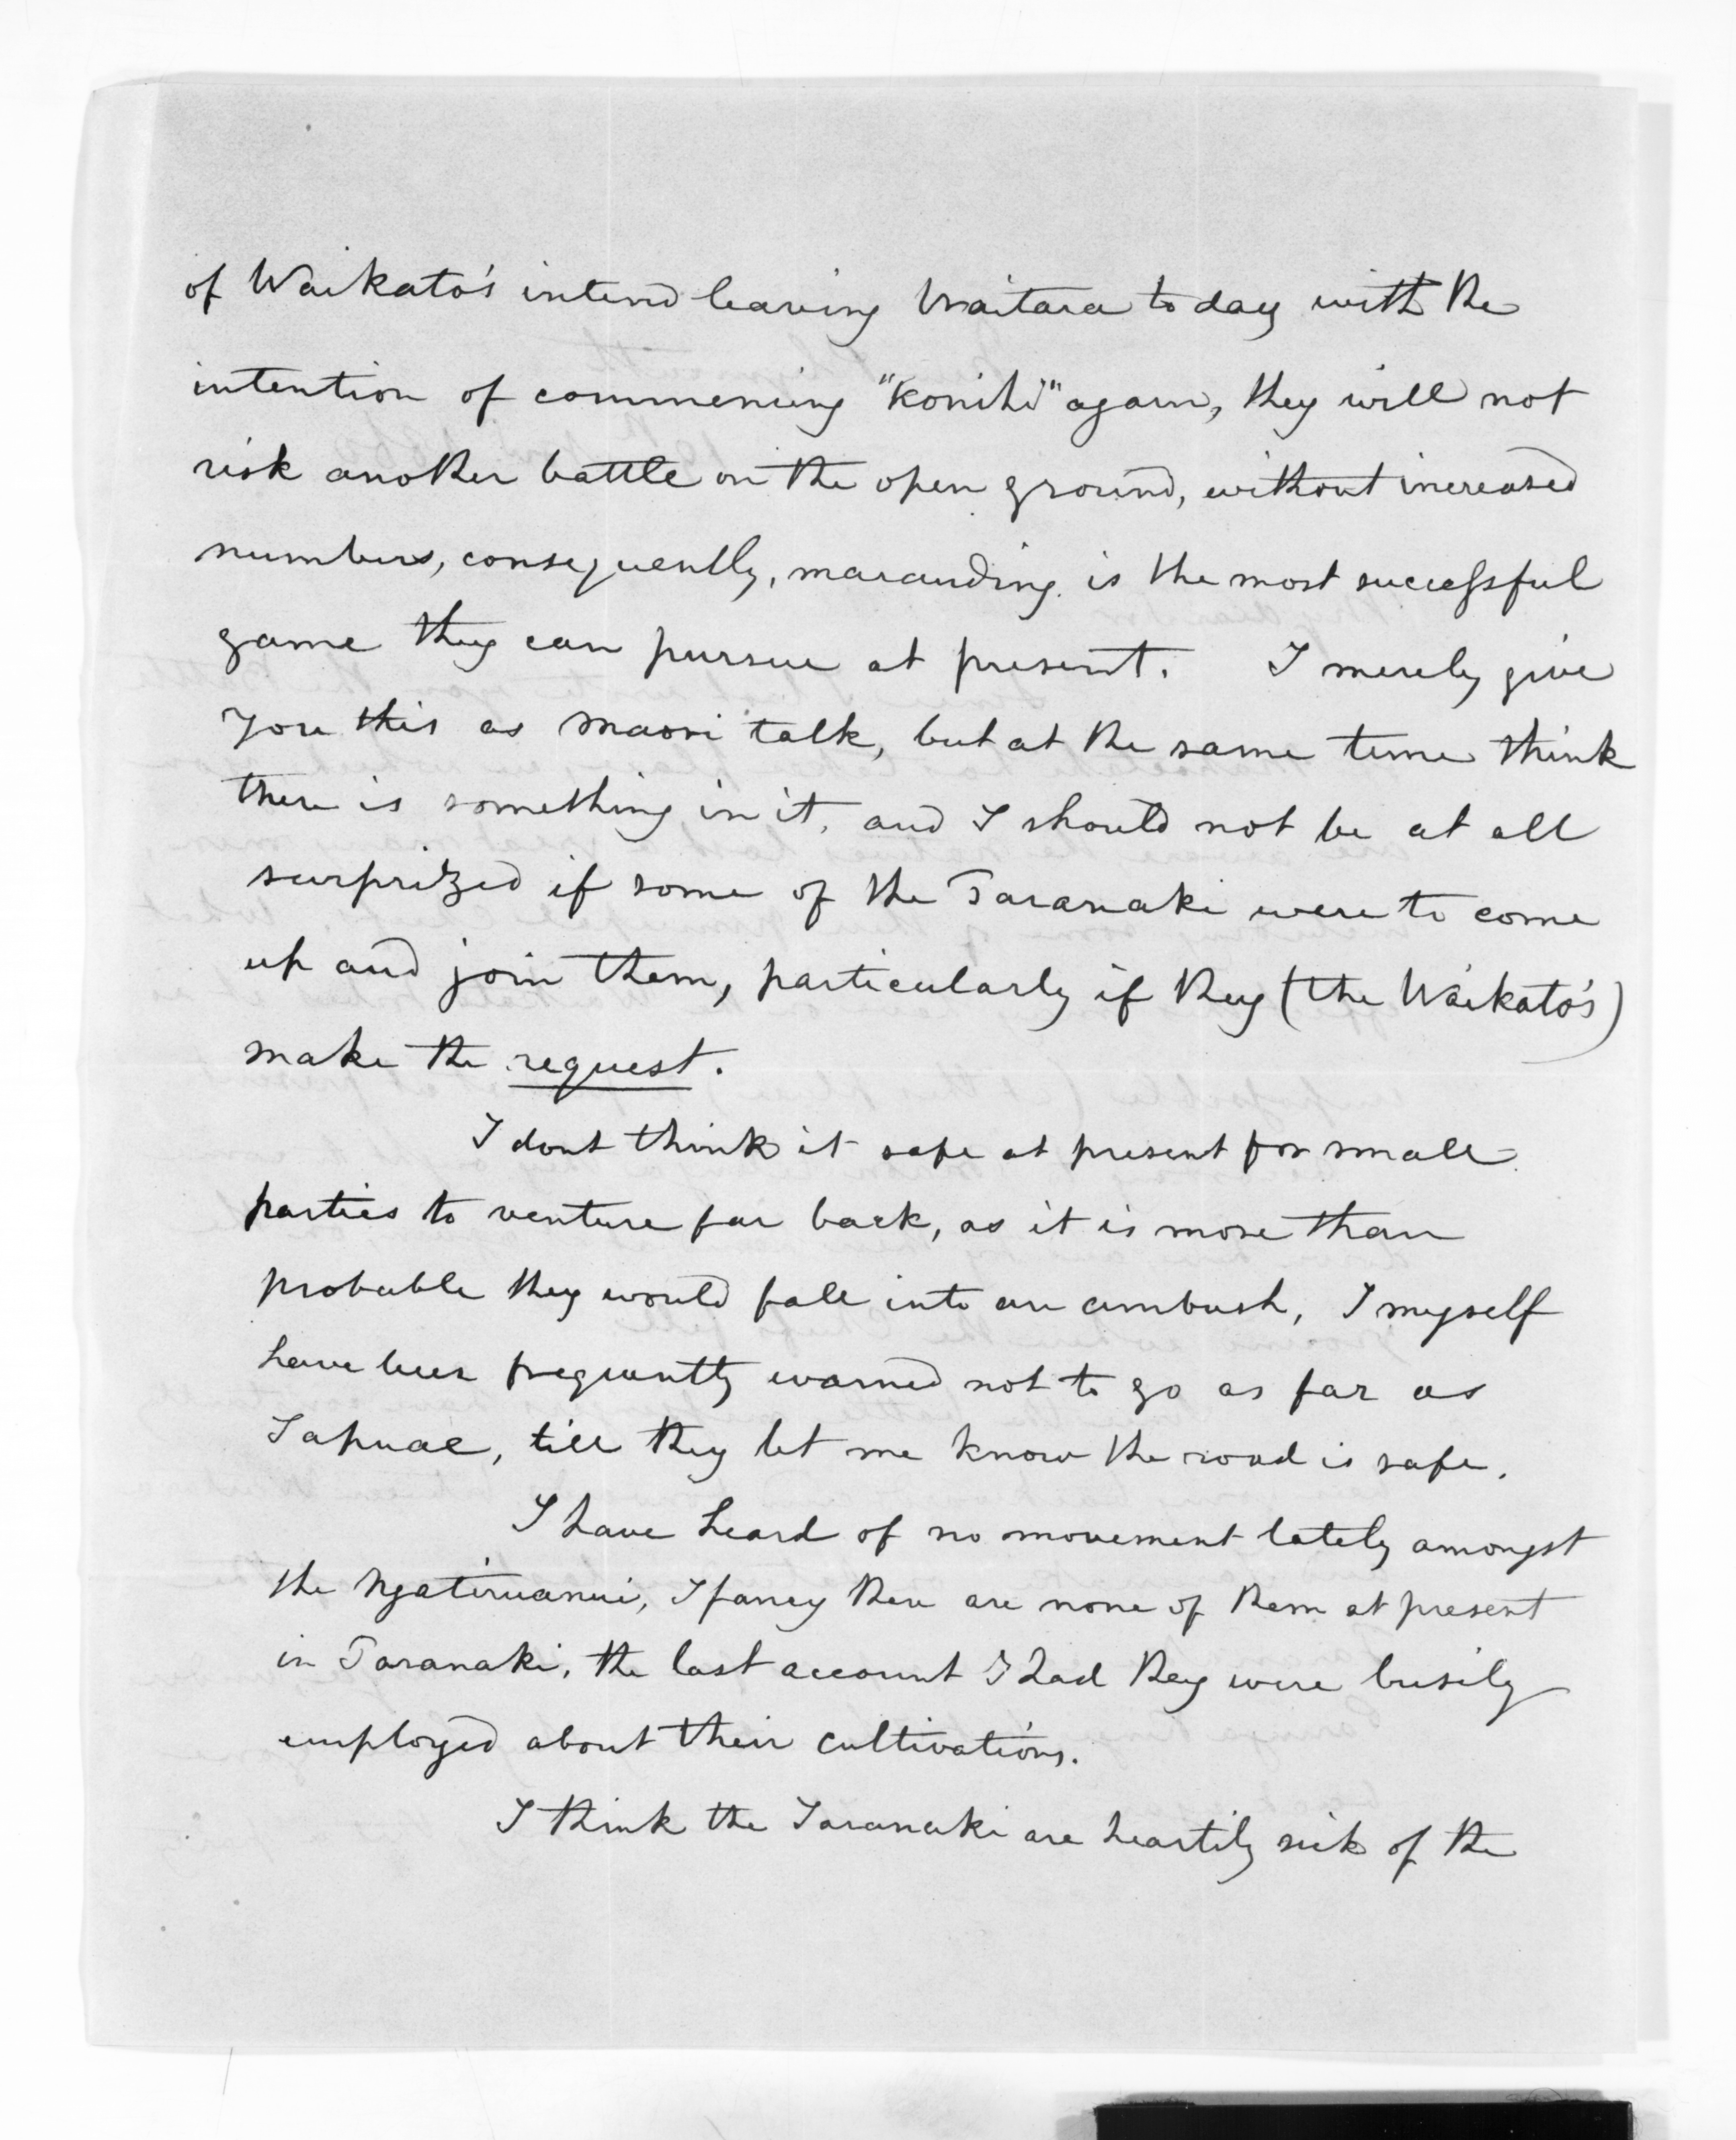 of Waikato's intend leaving Waitara to day with the
intention of commencing "Konihi" again, they will not
risk another battle on the open ground, without increased
numbers, consequently, marauding is the most successful
game they can pursue at present. I merely give
you this as Maori talk, but at the same time think
there is something in it, and I should not be at all
surprized if some of the Taranaki were to come
up and join them, particularly if they (the Waikato's)
make the request.
I dont think it safe at present for small
parties to venture far back, as it is more than
probable they would fall into an ambush, I myself
have been frequently warned not to go as far as
Tapuae, till they let me know the road is safe.
I have heard of no movement lately amongst
the Ngatiruanui, I fancy there are none of them at present
in Taranaki, the last account I had they were busily
employed about their cultivations.
I think the Taranaki are heartily sick of the